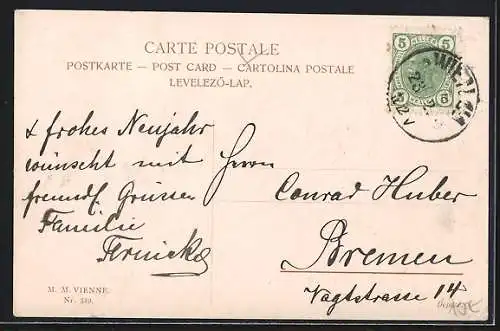 CARTE POSTALE
POSTKARTE — POST CARD — CARTOLINA POSTALE
LEVELEZŐ-LAP.
5 HELLER 5
WIEN
& frohes Neujahr
wünscht mit
freundl. Grüssen
Familie
Herrn
Conrad Huber
Bremen
Vagtstrasse 14
M. M. VIENNE.
Nr. 339.